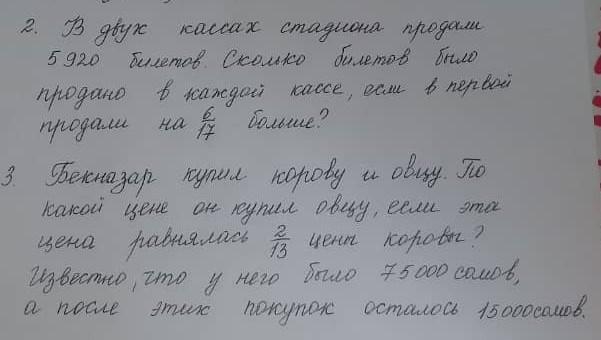 2. В двух кассах стадиона продали
5920 билетов. Сколько билетов было
продано в каждой кассе, если в первой
продали на 6/17 больше?
3. Бекназар купил корову и овцу. По
какой цене он купил овцу, если эта
цена равнялась 2/13 цены коровы?
Известно, что у него было 75000 сомов,
а после этих покупок осталось 15000 сомов.